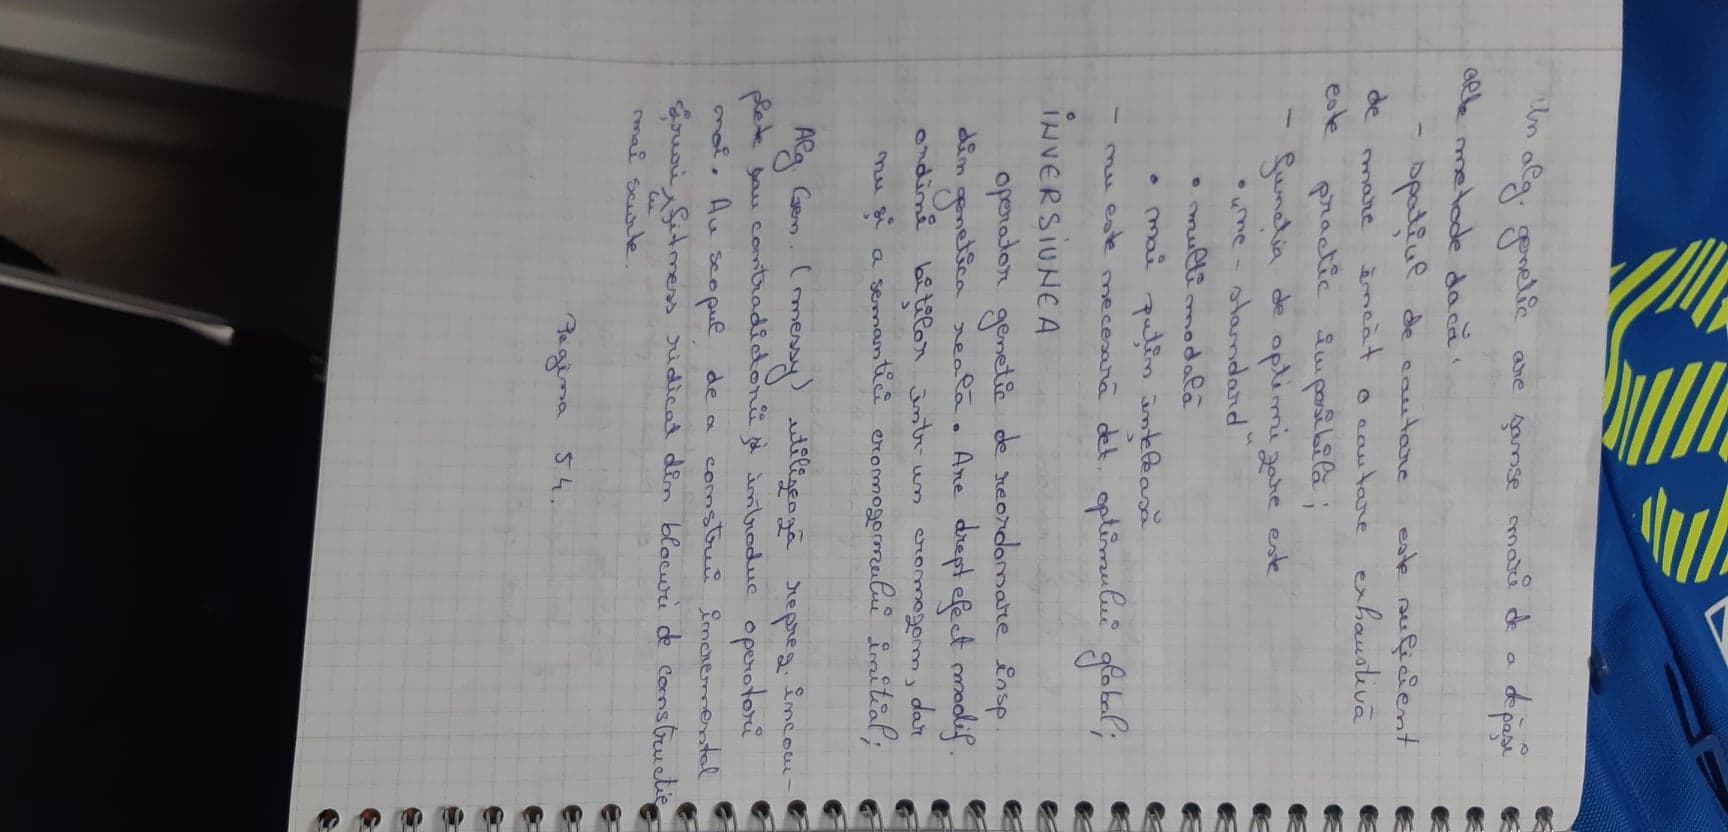 Un alg. genetic are șanse mari de a depăși
alte metode dacă:
- spațiul de cautare este suficient
de mare încât o cautare exhaustivă
este practic imposibilă;
- funcția de optimizare este
• „ne-standard"
• multimodală
• mai puțin înțeleasă
- nu este necesară det. optimului global;
INVERSIUNEA
operator genetic de reordonare insp.
din genetica reală. Are drept efect modif.
ordinii biților intr-un cromozom, dar
nu și a semantici cromozomului initial;
Alg. Gen. (messy) utilizează reprez. incom-
plete sau contradictorii și introduc operatori
noi. Au scopul de a construi incremental
șiruri cu fitness ridicat din blocuri de constructie
mai scurte.
Pagina 54.